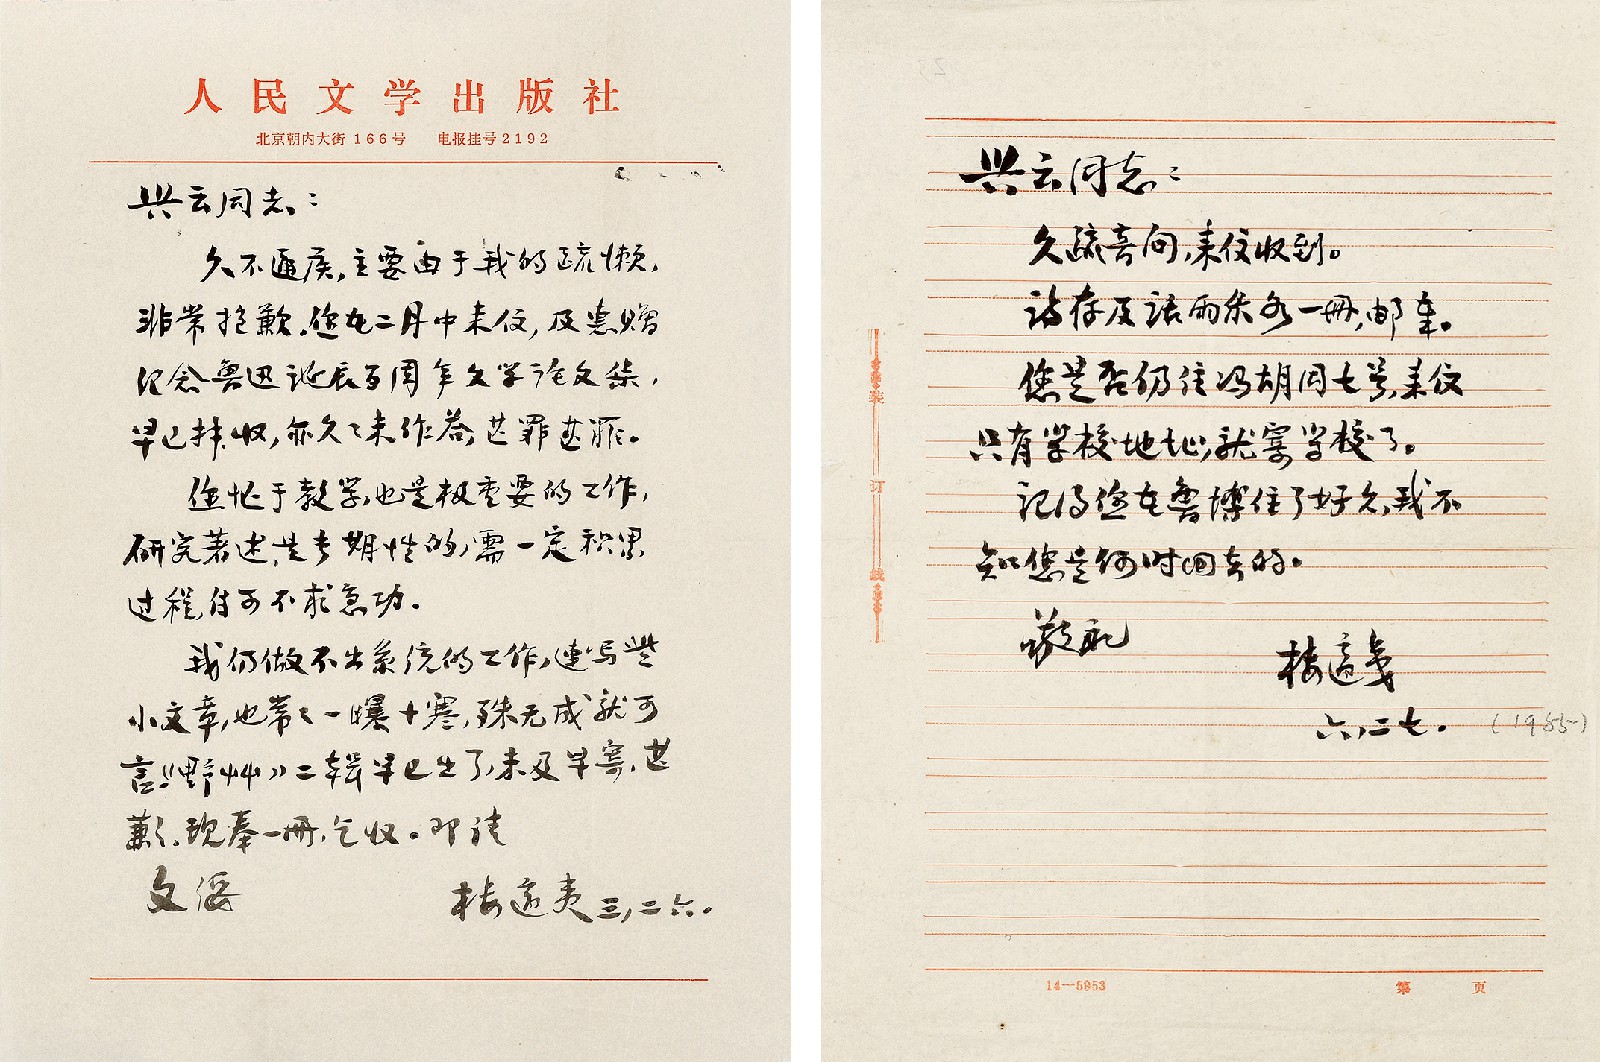 人民文学出版社
北京朝内大街166号 电报挂号2192
兴云同志：
久不通候，主要由于我的疏懒，
非常抱歉。您在二月中来信，及惠赠
纪念鲁迅诞辰百周年文学论文集，
早已拜收，亦久久未作答，甚罪甚罪。
您忙于教学，也是极重要的工作，
研究著述，是长期性的，需一定积累
过程，自可不求急功。
我仍做不出系统的工作，连写些
小文章，也常常一曝十寒，殊无成就可
言。《野艸》二辑早已出了，未及早寄，甚
歉歉，现奉一册，乞收。即请
文绥
楼适夷 三，二六。
兴云同志：
久疏音问，来信收到。
诗存及话雨录各一册，邮奉。
您是否仍住冯胡同七号，来信
只有学校地址，就寄学校了。
记得您在鲁博住了好久，我不
知您是何时回去的。
敬礼
楼适夷
六，二七。（1985）
装
订
线
14—5953
第 页